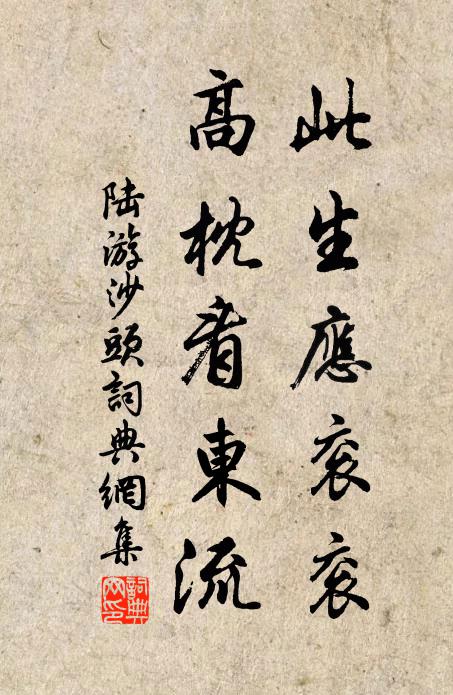 此生應衮衮
高枕看東流
陸游沙頭詞典網集
詞典网印